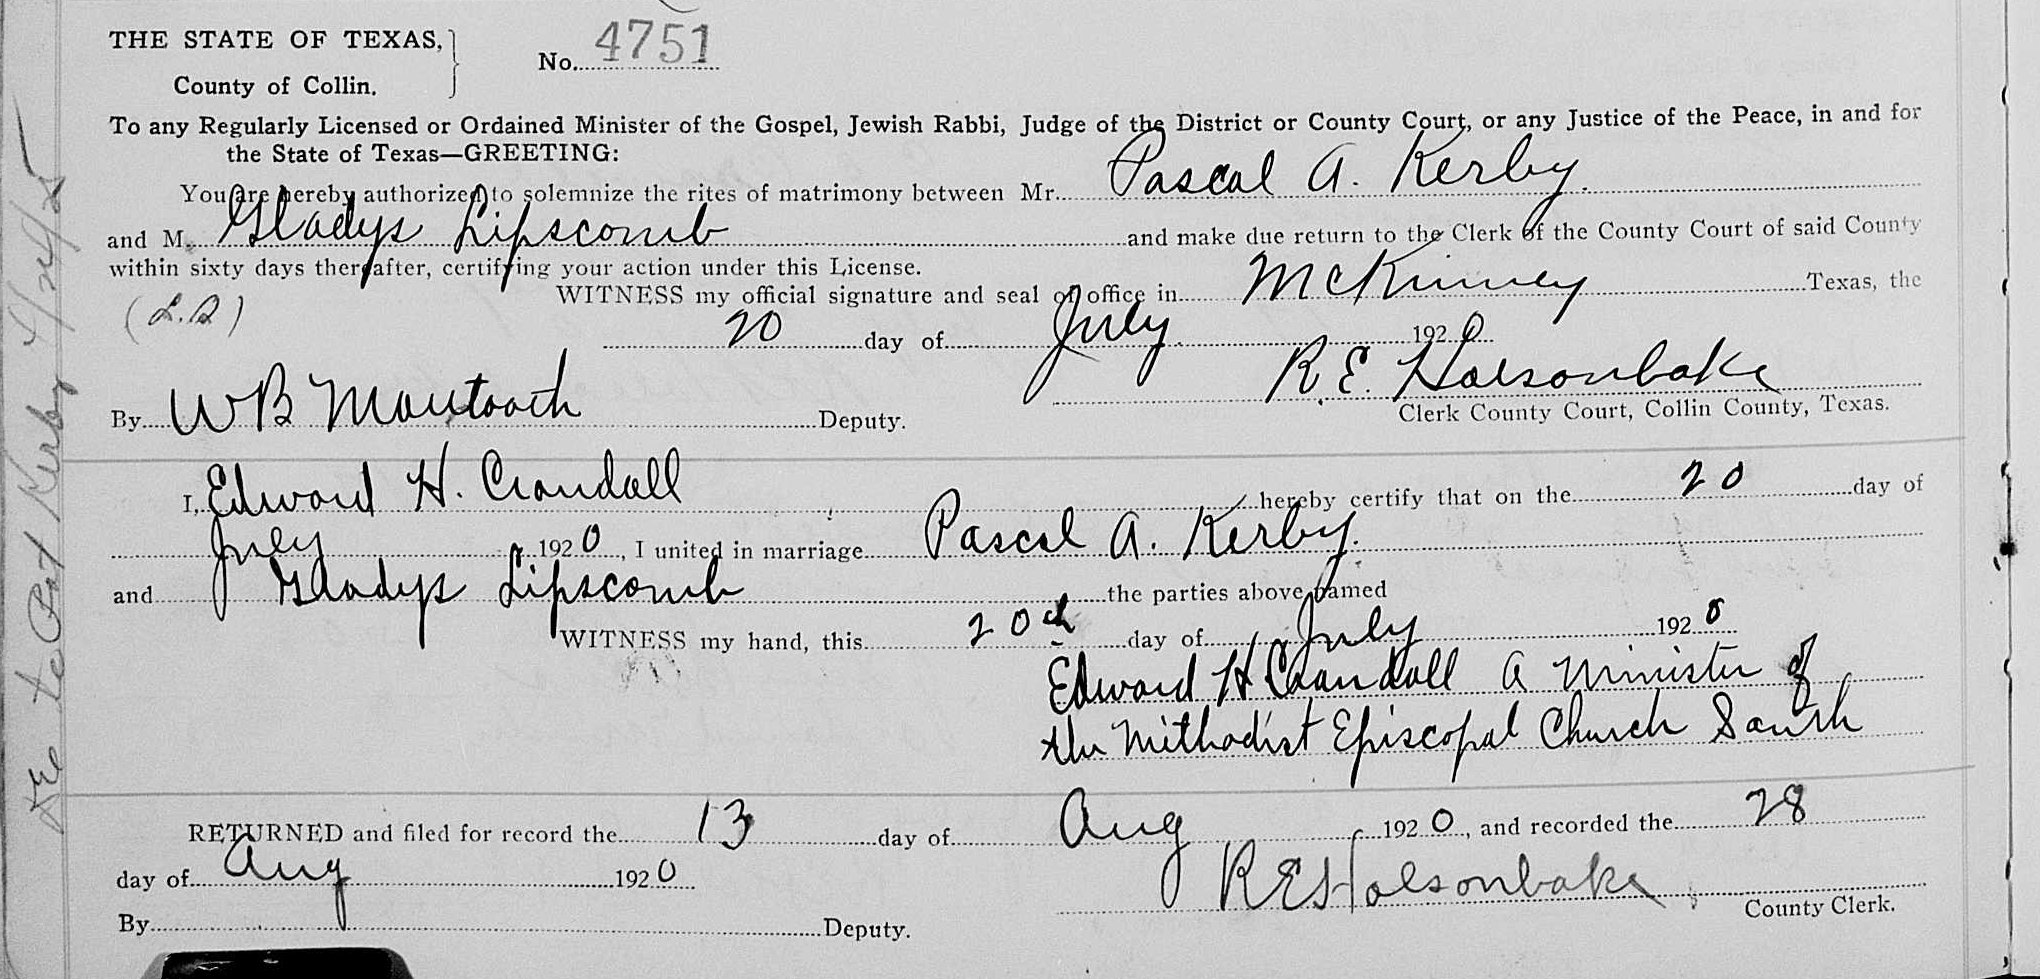 THE STATE OF TEXAS,
County of Collin.
No. 4751
To any Regularly Licensed or Ordained Minister of the Gospel, Jewish Rabbi, Judge of the District or County Court, or any Justice of the Peace, in and for
the State of Texas—GREETING:
You are hereby authorized to solemnize the rites of matrimony between Mr. Pascal A. Kerby.
and M. Gladys Lipscomb and make due return to the Clerk of the County Court of said County
within sixty days thereafter, certifying your action under this License.
WITNESS my official signature and seal of office in McKinney Texas, the
(L.S)
20 day of July 1920
R.E. Holsonbake
By W B Mantooth Deputy.
Clerk County Court, Collin County, Texas.
I, Edward H. Crandall hereby certify that on the 20 day of
July 1920, I united in marriage Pascal A. Kerby.
and Gladys Lipscomb the parties above named
WITNESS my hand, this 20th day of July 1920
Edward H Crandall A Minister of
the Methodist Episcopal Church South
RETURNED and filed for record the 13 day of Aug 1920, and recorded the 28
day of Aug 1920
R E Holsonbake
County Clerk.
By Deputy.
to Pat Kerby 4/24/25